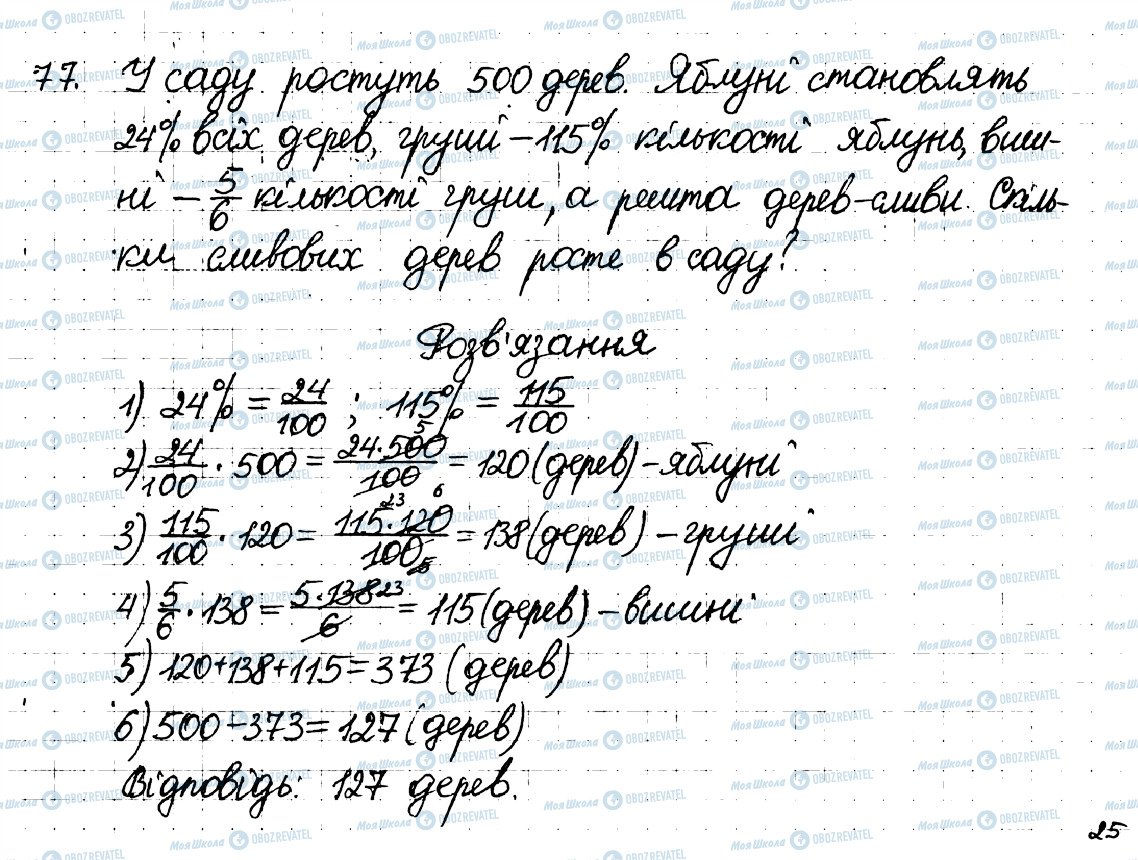 77. У саду ростуть 500 дерев. Яблуні становлять
24% всіх дерев, груші – 115% кількості яблунь, виш-
ні – 5/6 кількості груш, а решта дерев-сливи. Скіль-
ки сливових дерев росте в саду?
Розв'язання
1) 24% = 24/100 ; 115% = 115/100
2) 24/100 · 500 = 24·500/100 = 120 (дерев) – яблуні
3) 115/100 · 120 = 115·120/100 = 138 (дерев) – груші
4) 5/6 · 138 = 5·138/6 = 115 (дерев) – вишні
5) 120+138+115=373 (дерев)
6) 500-373=127 (дерев)
Відповідь: 127 дерев.
25